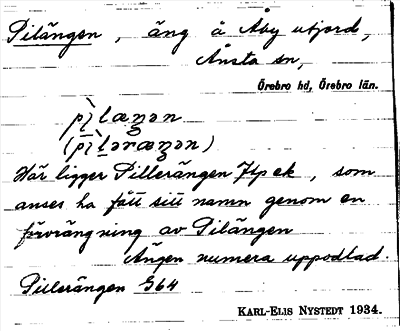 Pilängen, äng å Åby utjord,
Ånsta sn,
Örebro hd, Örebro län.
pìlæŋən
(pìləræŋən)
Här ligger Pillerängen Jfp ek, som
anses ha fått sitt namn genom en
förvrängning av Pilängen
Ängen numera uppodlad.
Pillerängen G64
KARL-ELIS NYSTEDT 1934.